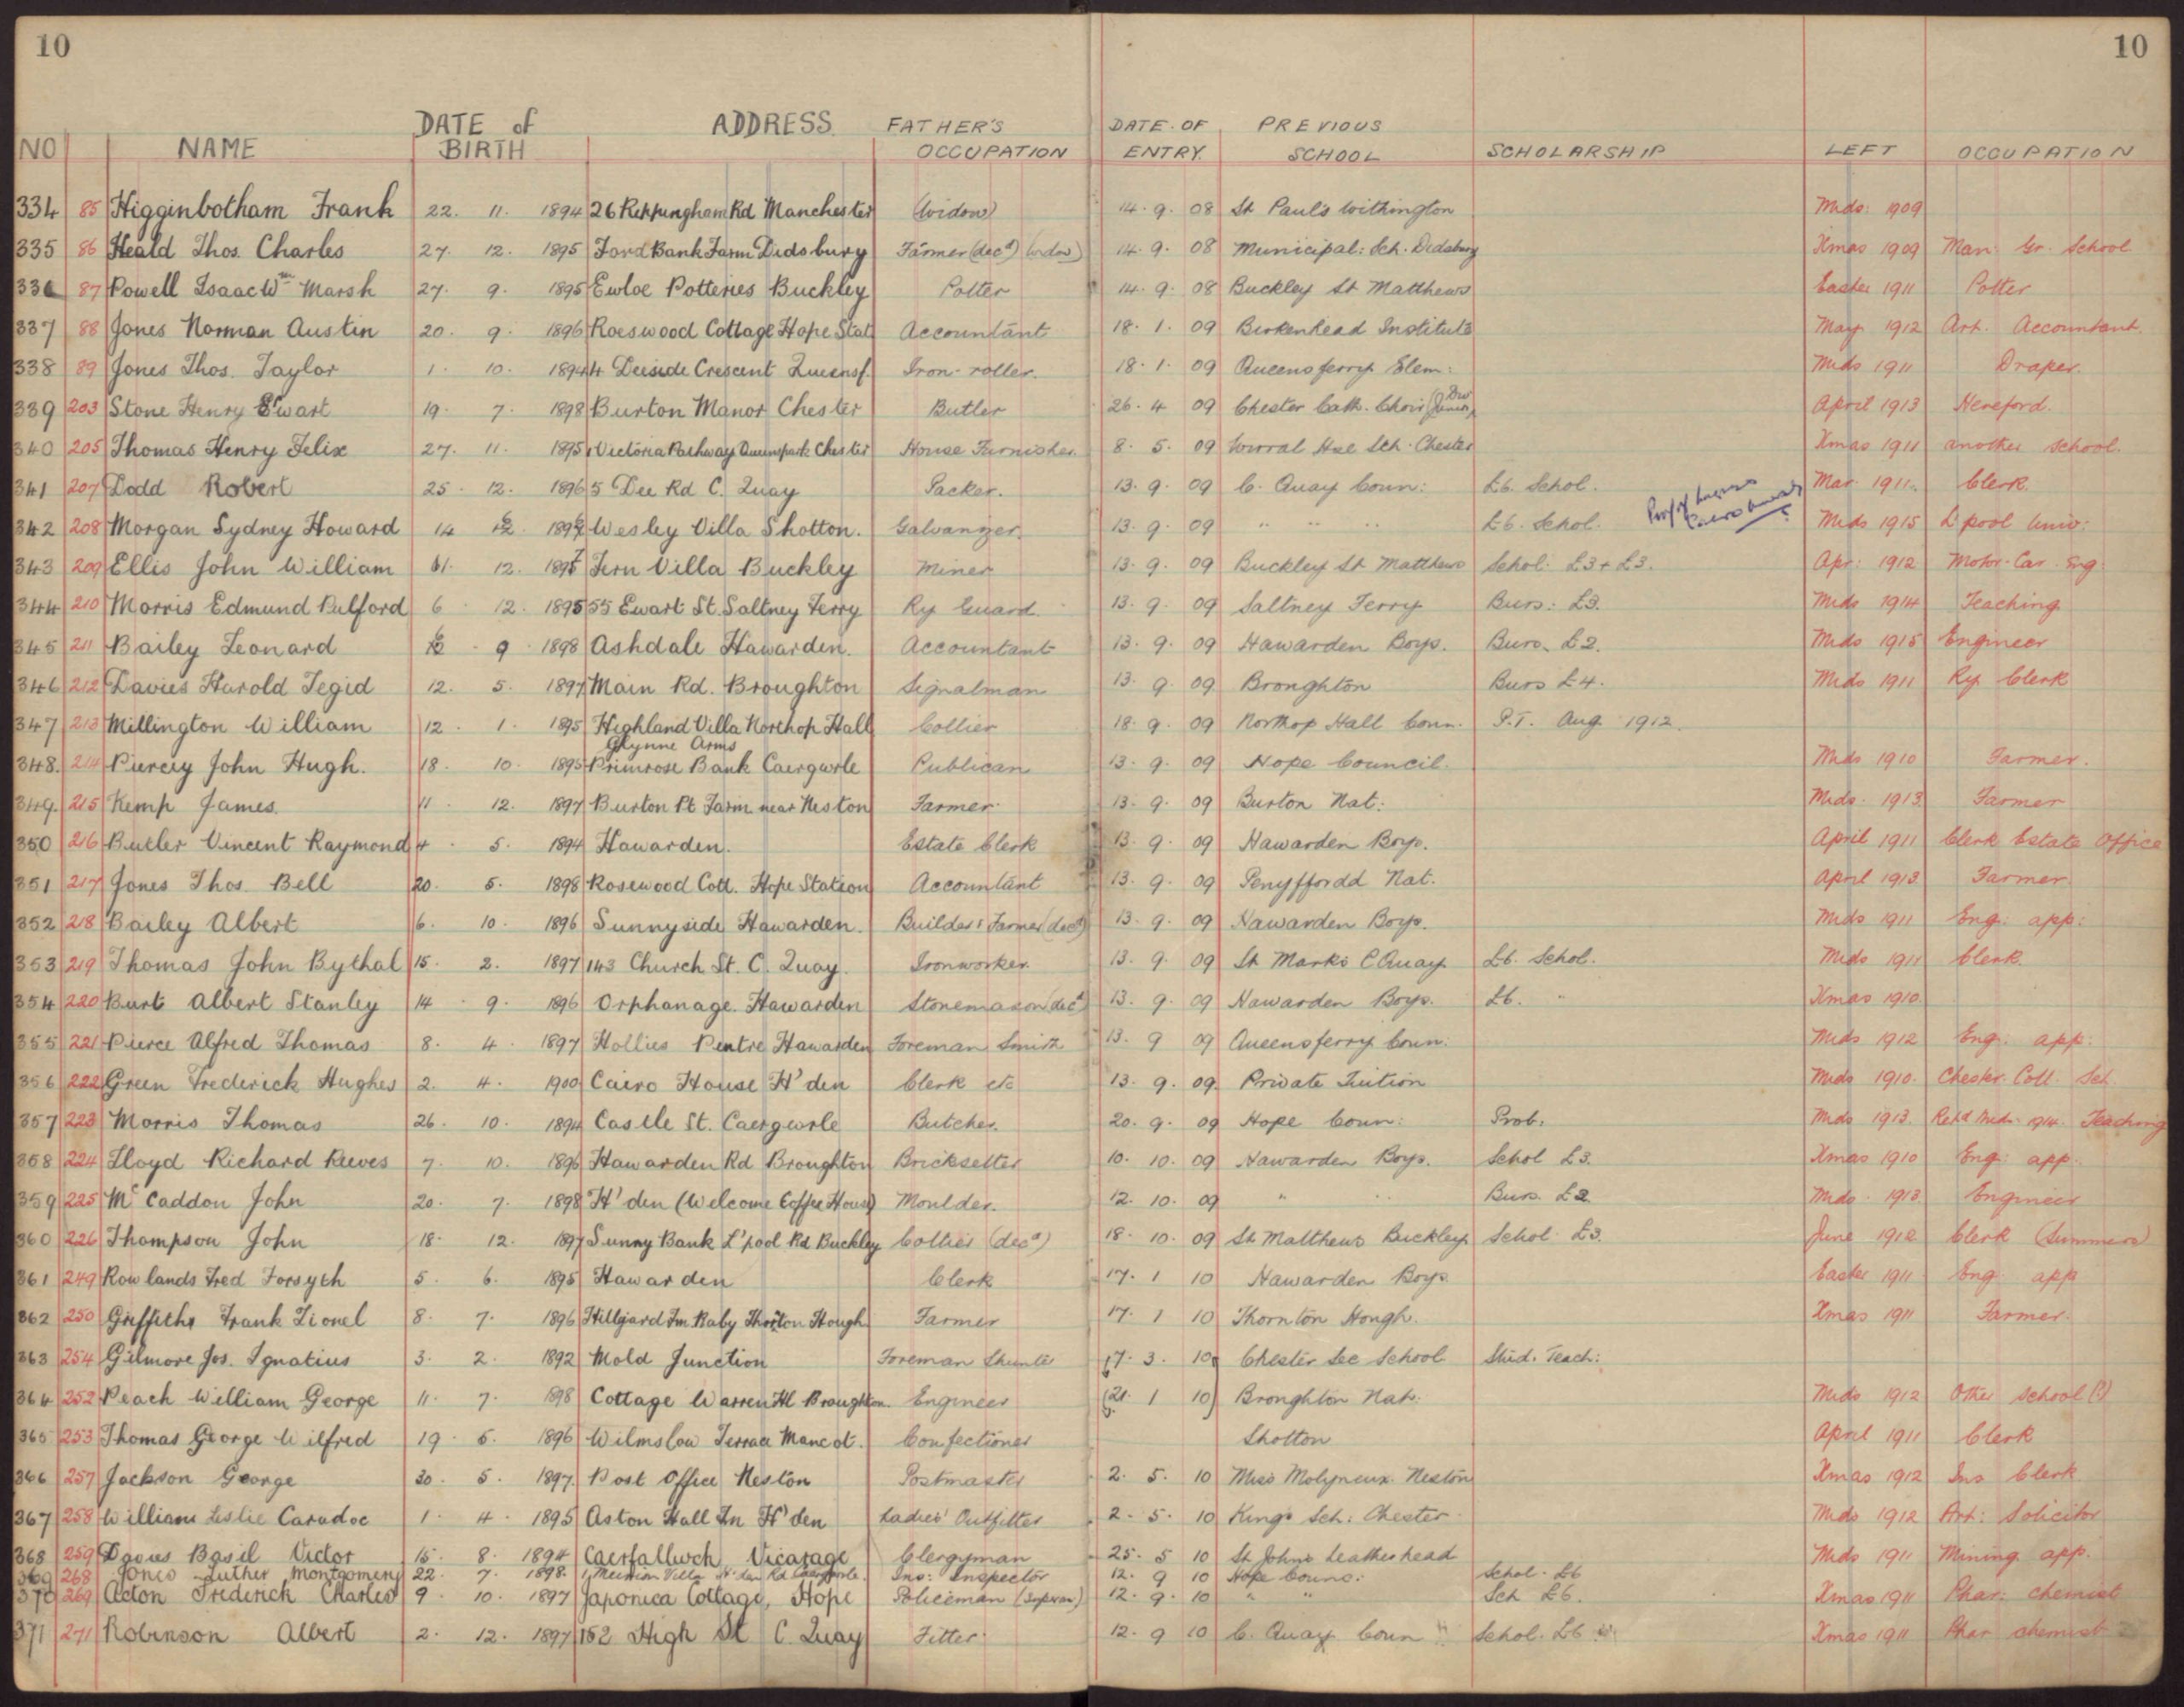 10 10
DATE of BIRTH ADDRESS FATHER'S OCCUPATION DATE OF ENTRY PREVIOUS SCHOOL
NO NAME SCHOLARSHIP LEFT OCCUPATION
334 85 Higginbotham Frank 22. 11. 1894 26 Reppingham Rd Manchester (Widow) 14. 9. 08 St Paul's Withington Mids: 1909
335 86 Heald Thos. Charles 27. 12. 1895 Ford Bank Farm Didsbury Farmer (decd) (widow) 14. 9. 08 Municipal: Sch. Didsbury Xmas 1909 Man: Gr. School
336 87 Powell Isaac Wm Marsh 27. 9. 1895 Ewloe Potteries Buckley Potter 14. 9. 08 Buckley St Matthews Easter 1911 Potter
337 88 Jones Norman Austin 20. 9. 1896 Roeswood Cottage Hope Stat Accountant 18. 1. 09 Birkenhead Institute May 1912 Art. Accountant
338 89 Jones Thos. Taylor 1. 10. 1894 4 Deeside Crescent Queensf. Iron-roller. 18. 1. 09 Queensferry Elem: Mids 1911 Draper.
339 203 Stone Henry Ewart 19. 7. 1898 Burton Manor Chester Butler 26. 4 09 Chester Cath. Choir April 1913 Hereford.
340 205 Thomas Henry Felix 27. 11. 1895 1 Victoria Pathway Queenspark Chester House Furnisher. 8. 5. 09 Wirral Hse Sch. Chester Xmas 1911 another school.
341 207 Dodd Robert 25. 12. 1896 5 Dee Rd C. Quay Packer. 13. 9. 09 C. Quay Coun: £6. Schol. Mar. 1911. Clerk.
342 208 Morgan Sydney Howard 14 Wesley Villa Shotton. Galvanizer. 13. 9. 09 " " " £6. Schol. Mids 1915 L'pool Univ:
343 209 Ellis John William 12. Fern Villa Buckley Miner 13. 9. 09 Buckley St Matthews Schol: £3 + £3. Apr: 1912 Motor-Car Eng.
344 210 Morris Edmund Pulford 6 12. 1895 55 Ewart St. Saltney Ferry Ry Guard. 13. 9. 09 Saltney Ferry Burs: £3. Mids 1914 Teaching
345 211 Bailey Leonard 9 1898 Ashdale Hawarden. Accountant 13. 9. 09 Hawarden Boys. Burs. £2. Mids 1915 Engineer
346 212 Davies Harold Tegid 12. 5. 1897 Main Rd. Broughton Signalman 13. 9. 09 Broughton Burs £4. Mids 1911 Ry Clerk
347 213 Millington William 12. 1. 1895 Highland Villa Northop Hall Collier 18. 9. 09 Northop Hall Coun. P.T. Aug. 1912.
Glynne Arms
348. 214 Piercy John Hugh. 18. 10. 1895 Primrose Bank Caergwrle Publican 13. 9. 09 Hope Council. Mids 1910 Farmer.
349. 215 Kemp James. 11. 12. 1897 Burton Pt Farm near Neston Farmer. 13. 9. 09 Burton Nat: Mids. 1913. Farmer
350 216 Butler Vincent Raymond 4. 5. 1894 Hawarden. Estate Clerk 13. 9. 09 Hawarden Boys. April 1911 Clerk Estate Office
351 217 Jones Thos. Bell 20. 5. 1898 Rosewood Cott. Hope Station Accountant 13. 9. 09 Penyffordd Nat. April 1913. Farmer.
352 218 Bailey Albert 6. 10. 1896 Sunnyside Hawarden. Builder & Farmer (decd) 13. 9. 09 Hawarden Boys. Mids 1911 Eng: app:
353 219 Thomas John Bythal 15. 2. 1897 143 Church St. C. Quay. Ironworker. 13. 9. 09 St Marks C Quay £6. Schol. Mids 1911 Clerk.
354 220 Burt Albert Stanley 14. 9. 1896 Orphanage. Hawarden Stonemason (decd) 13. 9. 09 Hawarden Boys. £6. " Xmas 1910.
355 221 Pierce Alfred Thomas 8. 4. 1897 Hollies Pentre Hawarden Foreman Smith 13. 9 09 Queensferry Coun: Mids 1912 Eng: app:
356 222 Green Frederick Hughes 2. 4. 1900 Cairo House H'den Clerk etc 13. 9. 09. Private Tuition Mids 1910. Chester. Coll. Sch
357 223 Morris Thomas 26. 10. 1894 Castle St. Caergwrle Butcher. 20. 9. 09 Hope Coun: Prob. Mids 1913. Retd Mids: 1914. Teaching
358 224 Lloyd Richard Reeves 7. 10. 1896 Hawarden Rd Broughton Bricksetter 10. 10. 09 Hawarden Boys. Schol £3. Xmas 1910 Eng: app.
359 225 Mc Caddon John 20. 7. 1898 H'den (Welcome Coffee House) Moulder. 12. 10. 09 " " Burs. £2 Mids. 1913 Engineer
360 226 Thompson John 18. 12. 1897 Sunny Bank L'pool Rd Buckley Collier (decd) 18. 10. 09 St Matthews Buckley Schol. £3. June 1912 Clerk (Summers)
361 249 Rowlands Fred Forsyth 5. 6. 1895 Hawarden Clerk 17. 1 10 Hawarden Boys. Easter 1911 Eng. app
362 250 Griffiths Frank Lionel 8. 7. 1896 Hillyard Fm. Raby Thornton Hough Farmer 17. 1 10 Thornton Hough. Xmas 1911 Farmer.
363 254 Gilmore Jos. Ignatius 3. 2. 1892 Mold Junction Foreman Shunter 17. 3. 10 Chester Sec School Stud. Teach:
364 252 Peach William George 11. 7. 1898 Cottage Warren Hl Broughton. Engineer (21. 1 10) Broughton Nat: Mids 1912 Other school (?)
365 253 Thomas George Wilfred 19. 6. 1896 Wilmslow Terrace Mancot. Confectioner Shotton April 1911 Clerk
366 257 Jackson George 30. 5. 1897. Post Office Neston Postmaster 2. 5. 10 Miss Molyneux. Neston Xmas 1912 Ins. Clerk
367 258 Williams Leslie Caradoc 1. 4. 1895 Aston Hall Ln H'den Ladies' Outfitter 2. 5. 10 Kings Sch: Chester Mids 1912 Art: Solicitor
368 259 Davies Basil Victor 15. 8. 1894 Caerfallwch Vicarage Clergyman 25. 5 10 St Johns Leatherhead Mids 1911 Mining app.
369 268 Jones Luther Montgomery 22. 7. 1898. Villa H'den Rd Caergwrle. Ins: Inspector 12. 9 10 Hope Counc: Schol. £6
370 269 Acton Frederick Charles 9. 10. 1897 Japonica Cottage, Hope Policeman 12. 9. 10 " " Sch £6. Xmas 1911 Phar: chemist
371 271 Robinson Albert 2. 12. 1897 152 High St C. Quay Fitter. 12. 9 10 C. Quay Coun Schol. £6 Xmas 1911 Phar chemist